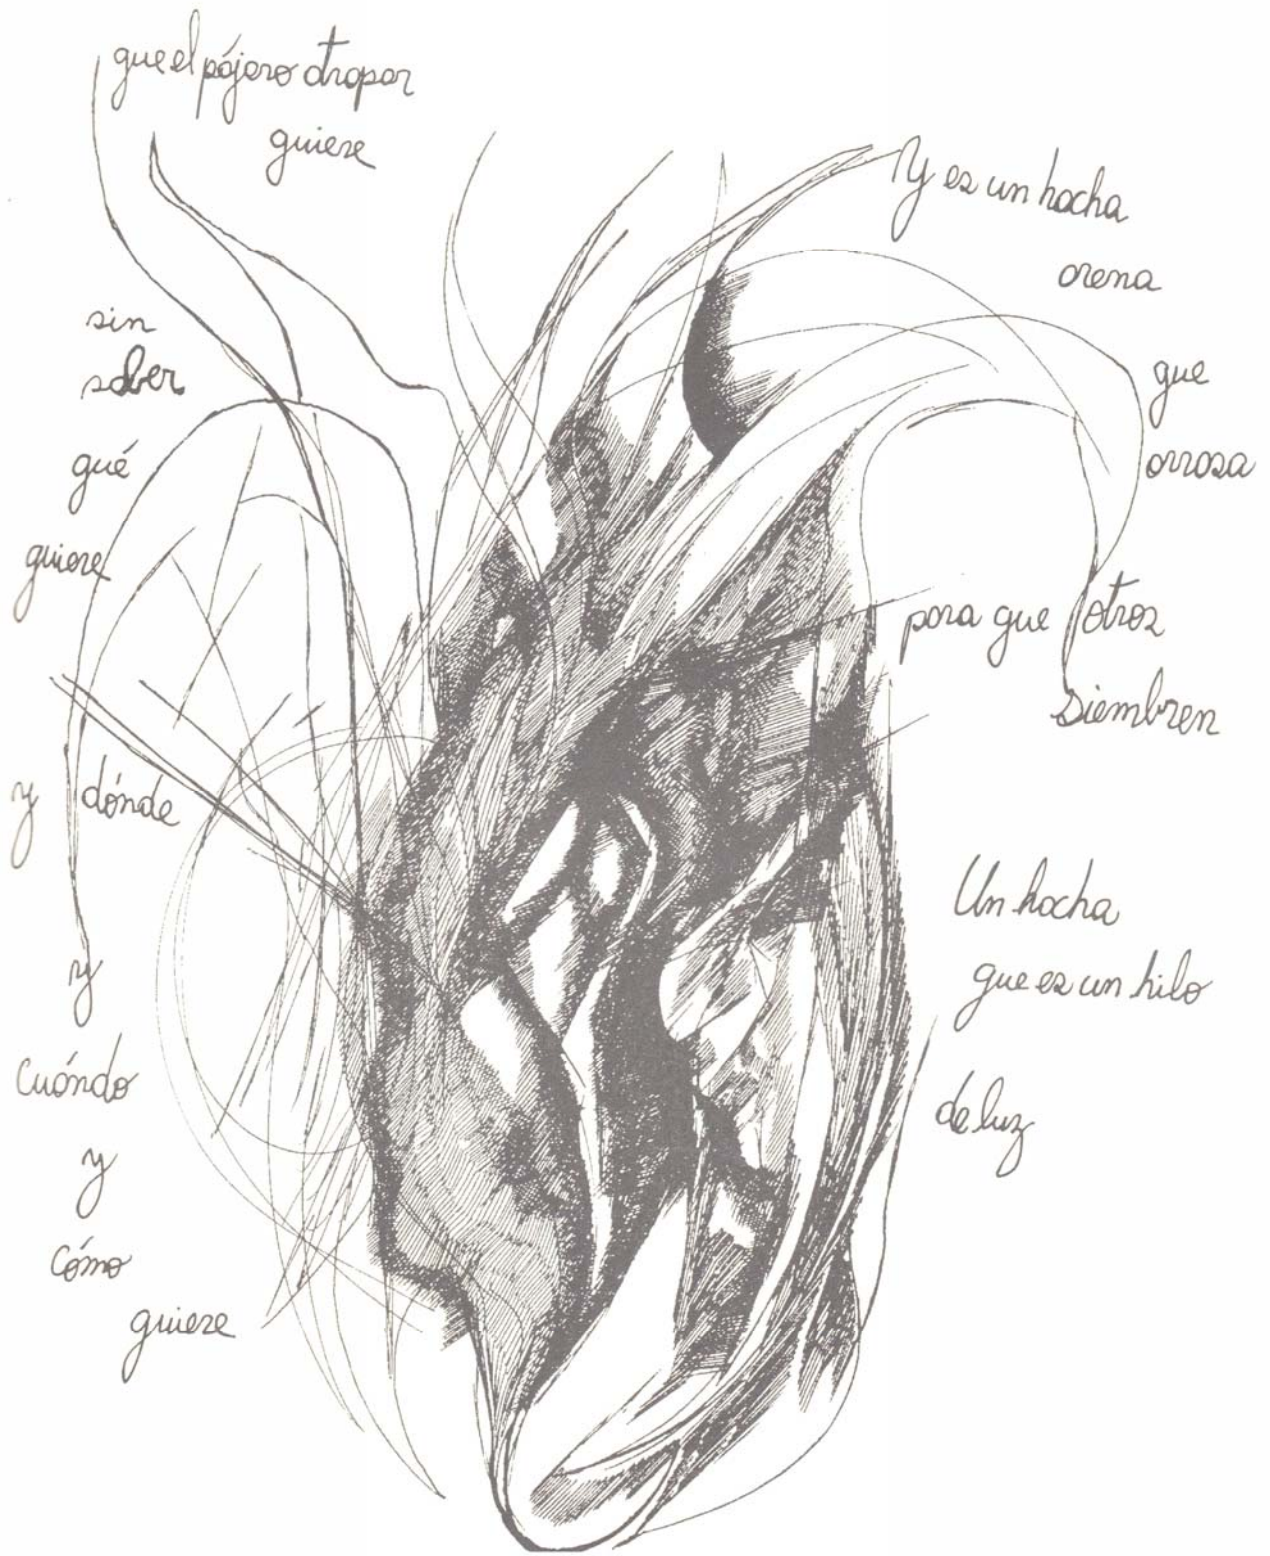 que el pájaro atrapar
quiere
sin
saber
qué
quiere
y dónde
y
cuándo
y
cómo
quiere
Y es un hacha
arena
que
arrasa
para que otros
siembren
Un hacha
que es un hilo
de luz